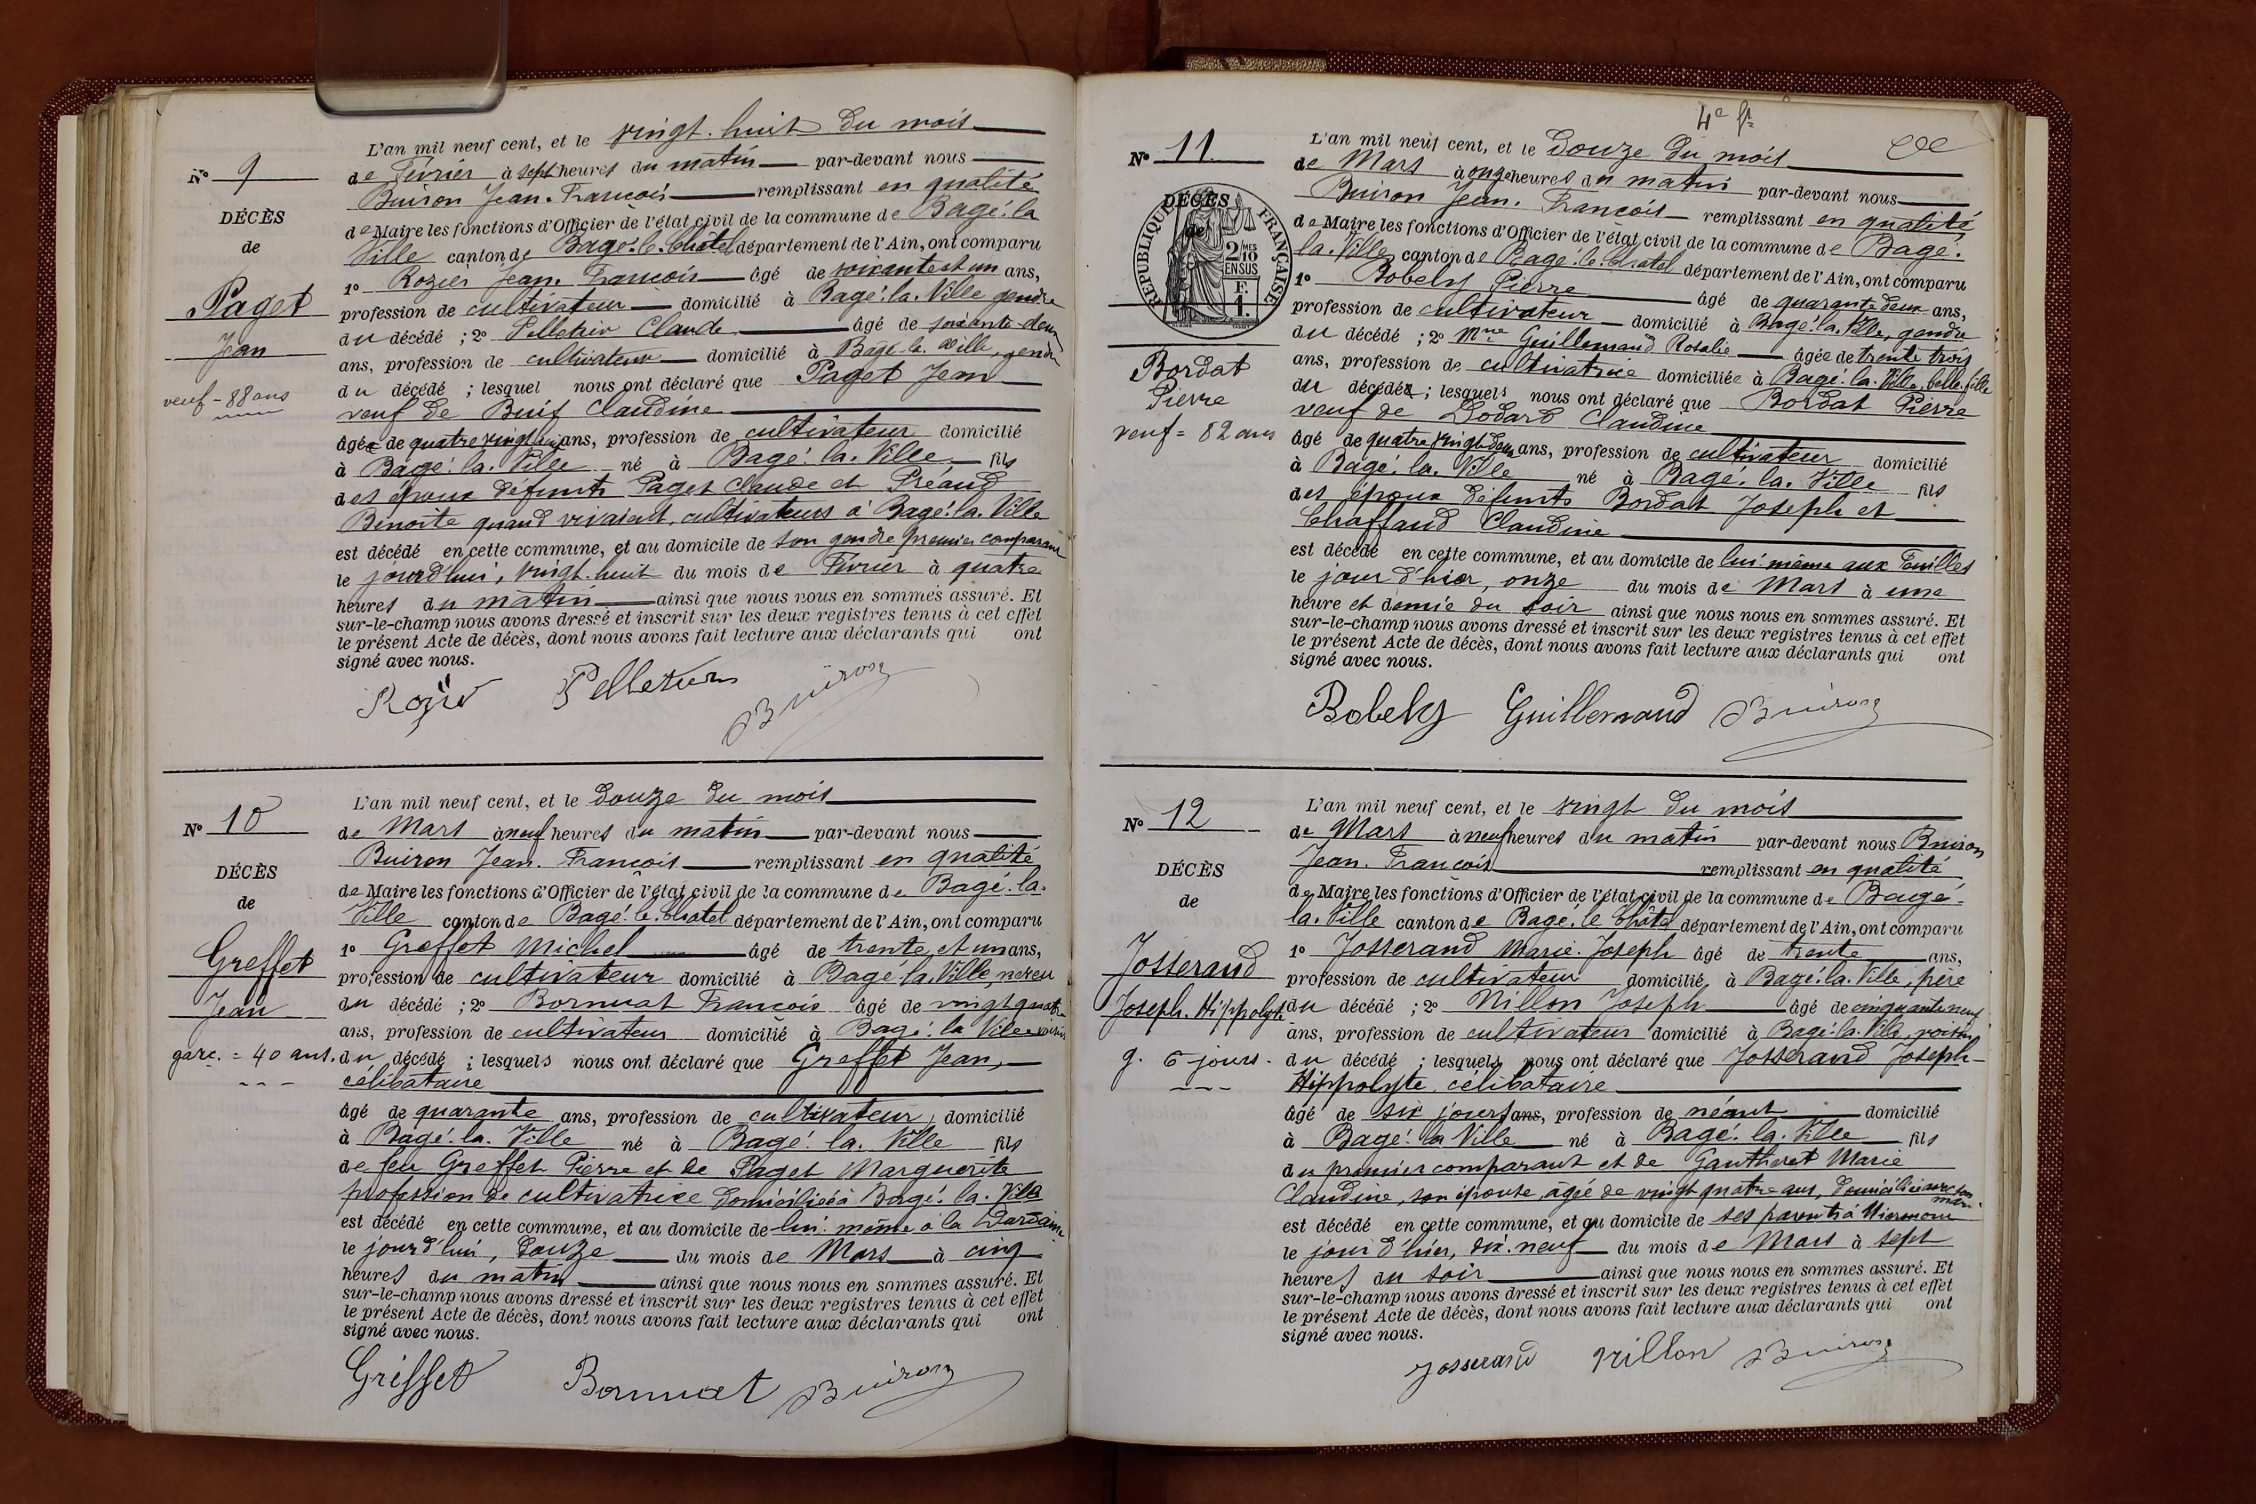 L'an mil neuf cent, et le vingt-huit du mois
N° 9
de Février à sept heures du matin par-devant nous
Buiron Jean-François remplissant en qualité
DÉCÈS
de Maire les fonctions d'Officier de l'état civil de la commune de Bagé-la
de
Ville canton de Bagé-le-Châtel département de l'Ain, ont comparu
1° Rozier Jean-François âgé de soixante et un ans,
Paget
profession de cultivateur domicilié à Bagé-la-Ville gendre
Jean
du décédé ; 2° Pelletier Claude âgé de soixante-deux
ans, profession de cultivateur domicilié à Bagé-la-Ville, gendre
veuf = 88 ans
du décédé ; lesquel nous ont déclaré que Paget Jean
veuf de Buis Claudine
âgé de quatre vingt huit ans, profession de cultivateur domicilié
à Bagé-la-Ville né à Bagé-la-Ville fils
des époux défunts Paget Claude et Préaud
Benoite quand vivaient cultivateurs à Bagé-la-Ville
est décédé en cette commune, et au domicile de son gendre premier comparant
le jourd'hui, vingt-huit du mois de Février à quatre
heures du matin ainsi que nous nous en sommes assuré. Et
sur-le-champ nous avons dressé et inscrit sur les deux registres tenus à cet effet
le présent Acte de décès, dont nous avons fait lecture aux déclarants qui ont
signé avec nous.
Pelletier Buiron
L'an mil neuf cent, et le douze du mois
N° 10
de Mars à neuf heures du matin par-devant nous
Buiron Jean-François remplissant en qualité
DÉCÈS
de Maire les fonctions d'Officier de l'état civil de la commune de Bagé-la-
de
Ville canton de Bagé-le-Châtel département de l'Ain, ont comparu
1° Greffet Michel âgé de trente et un ans,
Greffet
profession de cultivateur domicilié à Bagé-la-Ville, neveu
Jean
du décédé ; 2° Bornuat François âgé de vingt quatre
ans, profession de cultivateur domicilié à Bagé-la-Ville voisin
garç. = 40 ans.
du décédé ; lesquels nous ont déclaré que Greffet Jean,
célibataire
âgé de quarante ans, profession de cultivateur, domicilié
à Bagé-la-Ville né à Bagé-la-Ville fils
de feu Greffet Pierre et de Paget Marguerite
profession de cultivatrice domiciliée à Bagé-la-Ville
est décédé en cette commune, et au domicile de lui-même à la
le jourd'hui, douze du mois de Mars à cinq
heures du matin ainsi que nous nous en sommes assuré. Et
sur-le-champ nous avons dressé et inscrit sur les deux registres tenus à cet effet
le présent Acte de décès, dont nous avons fait lecture aux déclarants qui ont
signé avec nous.
Griffet Bornuat Buiron
4e ft
L'an mil neuf cent, et le douze du mois
N° 11
de Mars à onze heures du matin par-devant nous
Buiron Jean-François remplissant en qualité
DÉCÈS
de Maire les fonctions d'Officier de l'état civil de la commune de Bagé-
de
la-Ville canton de Bagé-le-Châtel département de l'Ain, ont comparu
RÉPUBLIQUE FRANÇAISE
2 MES
10
EN SUS
F.
1.
1° Bobely Pierre âgé de quarante-deux ans,
profession de cultivateur domicilié à Bagé-la-Ville, gendre
du décédé ; 2° Mme Guillemaud Rosalie âgée de trente trois
Bordat
ans, profession de cultivatrice domiciliée à Bagé-la-Ville, belle-fille
Pierre
du décédé ; lesquels nous ont déclaré que Bordat Pierre
veuf = 82 ans
veuf de Dodard Claudine
âgé de quatre vingt deux ans, profession de cultivateur domicilié
à Bagé-la-Ville né à Bagé-la-Ville fils
des époux défunts Bordat Joseph et
Chaffaud Claudine
est décédé en cette commune, et au domicile de lui-même aux
le jour d'hier, onze du mois de Mars à une
heure et demie du soir ainsi que nous nous en sommes assuré. Et
sur-le-champ nous avons dressé et inscrit sur les deux registres tenus à cet effet
le présent Acte de décès, dont nous avons fait lecture aux déclarants qui ont
signé avec nous.
Bobely Guillemaud Buiron
L'an mil neuf cent, et le vingt du mois
N° 12
de Mars à neuf heures du matin par-devant nous Buiron
Jean-François remplissant en qualité
DÉCÈS
de Maire les fonctions d'Officier de l'état civil de la commune de Bagé-
de
la-Ville canton de Bagé-le-Châtel département de l'Ain, ont comparu
1° Josserand Marie-Joseph âgé de trente ans,
Josserand
profession de cultivateur domicilié à Bagé-la-Ville, père
Joseph-Hippolyte
du décédé ; 2° Nillon Joseph âgé de cinquante neuf
ans, profession de cultivateur domicilié à Bagé-la-Ville, voisin
g. 6 jours.
du décédé ; lesquels nous ont déclaré que Josserand Joseph-
Hippolyte célibataire
âgé de six jours ans, profession de néant domicilié
à Bagé-la-Ville né à Bagé-la-Ville fils
du premier comparant et de Gautheret Marie
Claudine, son épouse, âgée de vingt quatre ans, domiciliée avec son mari
est décédé en cette commune, et au domicile de ses parents à
le jour d'hier, dix-neuf du mois de Mars à sept
heures du soir ainsi que nous nous en sommes assuré. Et
sur-le-champ nous avons dressé et inscrit sur les deux registres tenus à cet effet
le présent Acte de décès, dont nous avons fait lecture aux déclarants qui ont
signé avec nous.
Josserand Nillon Buiron